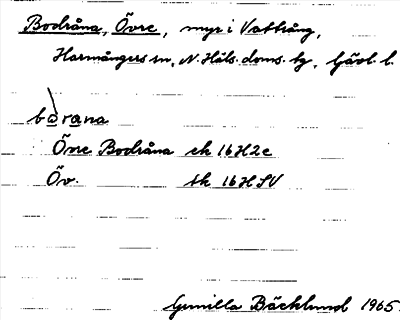 Bodråna, Övre, myr i Vattrång,
Harmångers sn, N. Häls. doms. tg, Gävl. l.
bòrana
Övre Bodråna ek 16H2c
Öv. sk 16H SV
Gunilla Bäcklund 1965.